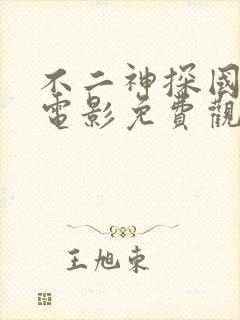 不二神探國
電影免費觀
王旭東